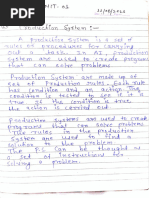 UNIT: 02
Production System :-
A Production System is a set of
rules or procedures for carrying
out a task. In AI, Production
System are used to create programs
that can solve problems.
Production System are made up of
set of Production rules. Each rule
has condition and an action. The
condition is tested to see if it is
true and the action is carried out
if the condition
Production System are used to create
programs that can solve problems.
The rules in the production
System are used to find a
solution to the problem.
can be thought of as
a set of instructions for
solving a problem.